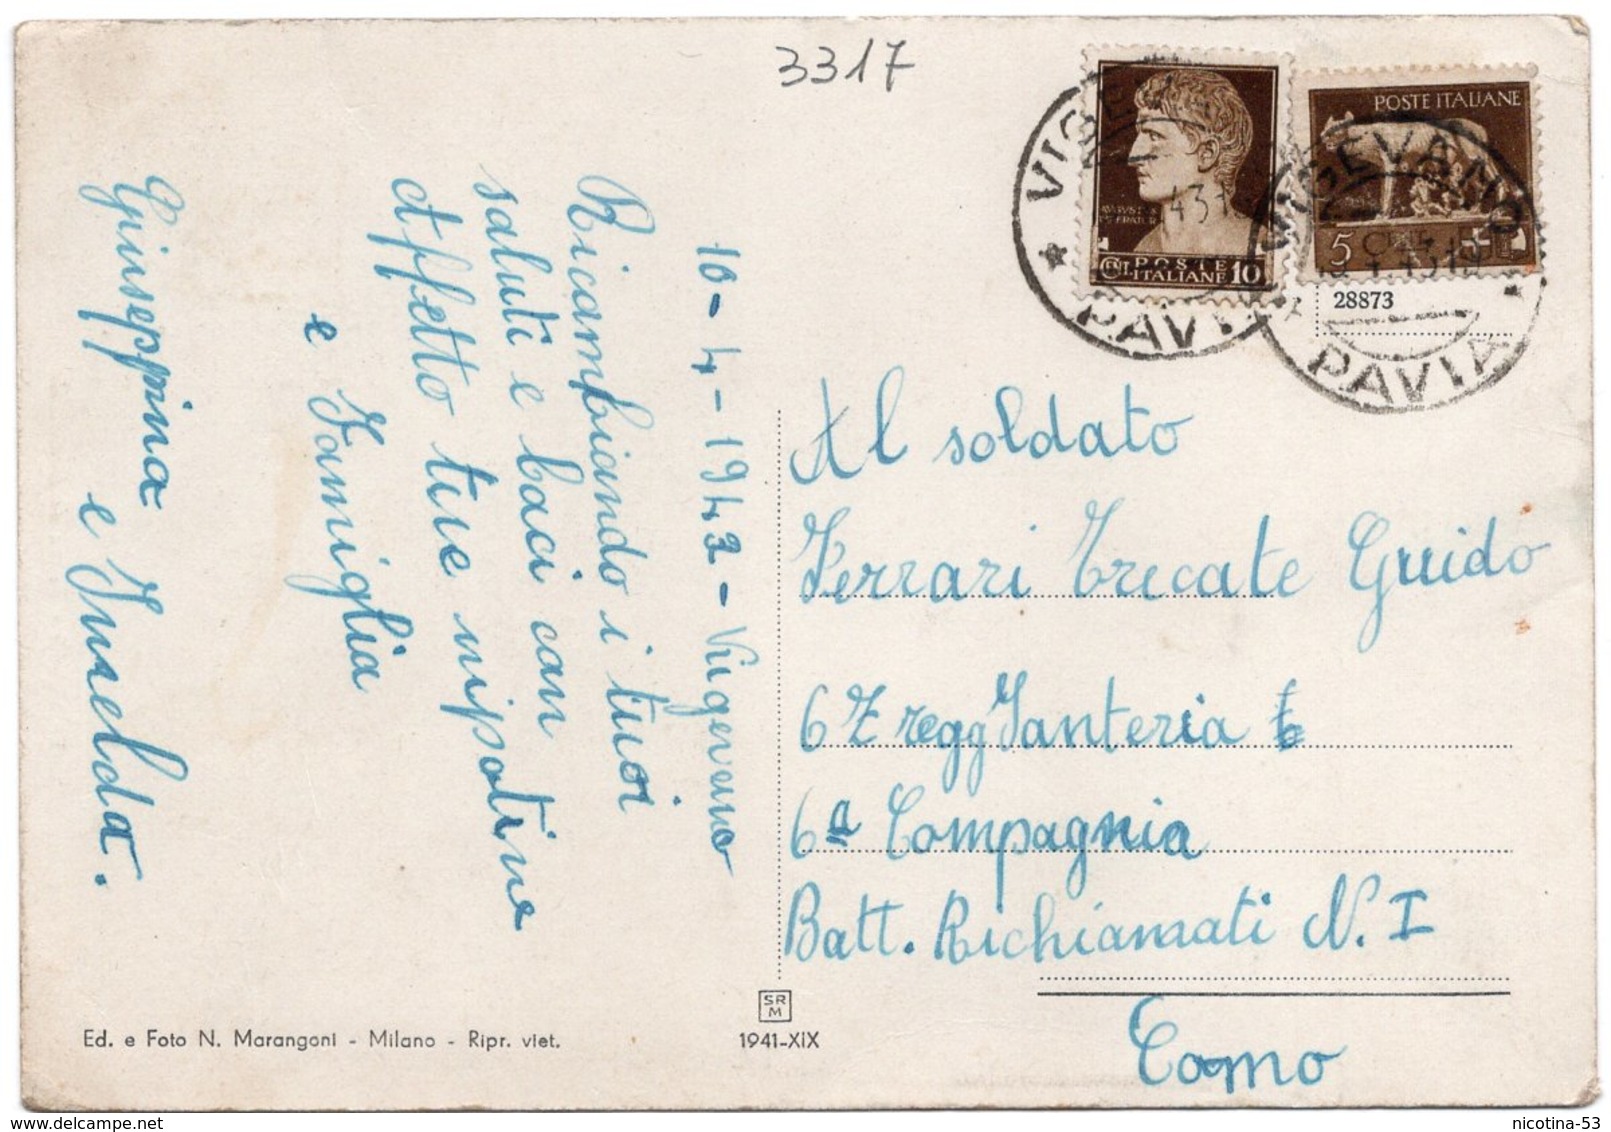 3317
10-4-1943-Vigevano
Ricambiando i tuoi
saluti e baci con
affetto tue nipotine
e Famiglia
Giuseppina
e Imelda.
VIGEVANO
43
PAVIA
AUGUSTUS
IMPERATOR
CENT. POSTE ITALIANE 10
POSTE ITALIANE
5 CENT
VIGEVANO
PAVIA
28873
Al soldato
Ferrari Trecate Guido
67 regg Fanteria
6a Compagnia
Batt. Richiamati N. I
Como
Ed. e Foto N. Marangoni - Milano - Ripr. viet.
SR
M
1941-XIX
nicotina-53